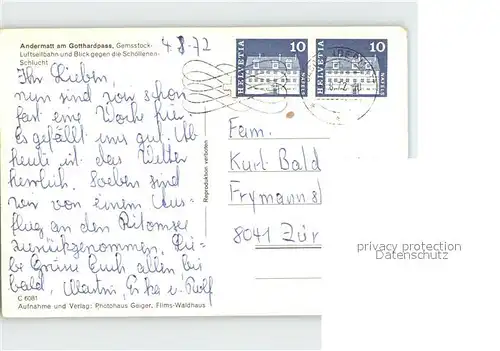 Andermatt am Gotthardpass, Gemsstock-
Luftseilbahn und Blick gegen die Schöllenen-
Schlucht
4.8.72
HELVETIA 10 NÄFELS
HELVETIA 10 NÄFELS
Ihr Lieben,
nun sind wir schon
fast eine Woche hier
es gefällt uns gut. Ab
heute ist das Wetter
herrlich. Soeben sind
wir von einem Aus-
flug an den Ritomsee
zurückgenommen. Lie-
be Grüße Euch allen bis
bald, Martin, Erika u. Rolf
Reproduktion verboten
Fam.
Kurt Bald
Frymanns
8041 Zür
privacy protection
Datenschutz
C 6081
Aufnahme und Verlag: Photohaus Geiger, Flims-Waldhaus